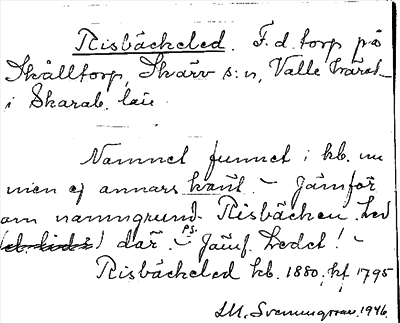 Risbäckeled. F.d. torp på
Skålltorp, Skärv s:n, Valle härad
i Skarab. län
Namnet funnet i kb. nu
men ej annars känt. - Jämför
om namngrund Risbäcken. Led
(el. lid:s) där. P.S. Jämf. Ledet! -
Risbäckeled kb. 1880, hf 1795
M. Svenungsson. 1946.